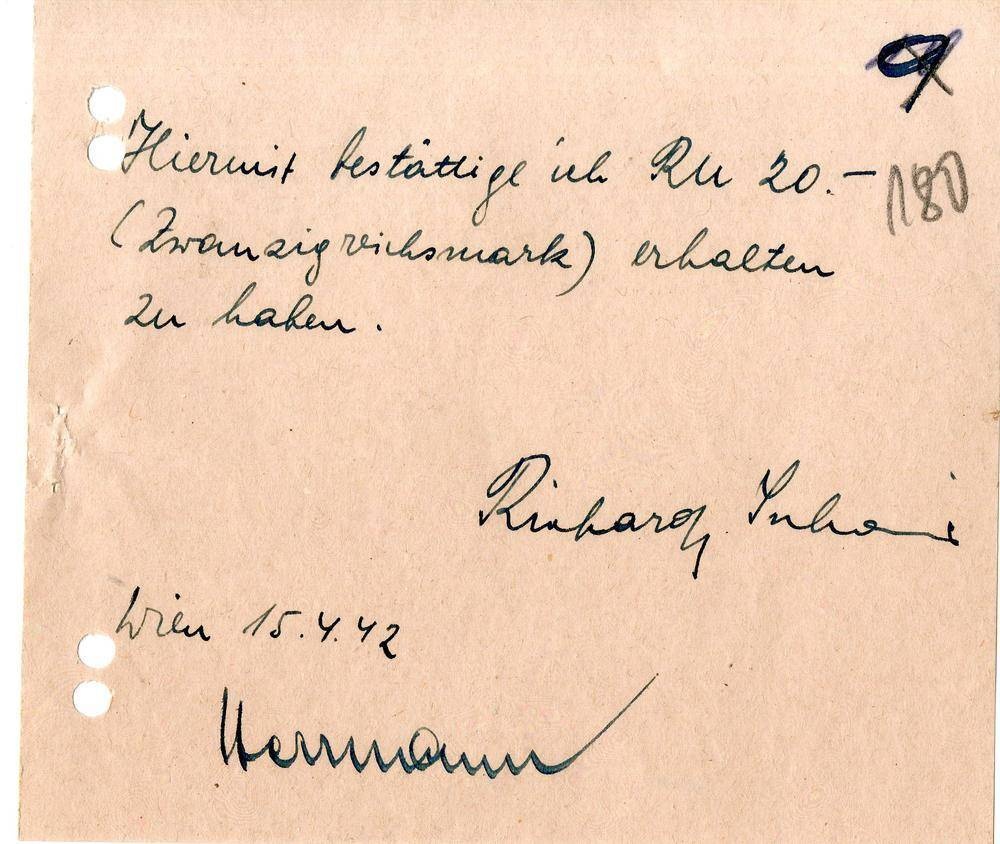 9
Hiermit bestättige ich RM 20.—
180
(Zwanzigreichsmark) erhalten
zu haben.
Richard
Wien 15.4.42
Herrmann